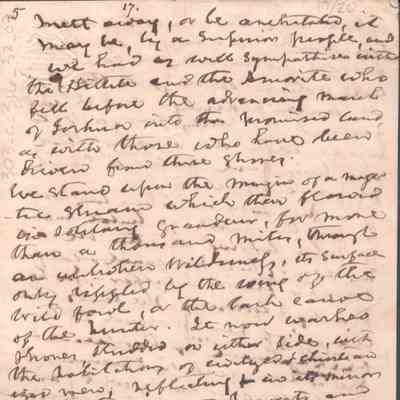 5 17.
melt away, or be annihilated, it
may be, by a superior people, and
we had as well sympathise with
the Hittite and the Amorite who
fell before the advancing march
of Joshua into the promised land
as with those who have been
driven from these shores.
We stand upon the margin of a majes-
tic stream which then flowed
in solitary grandeur, for more
than a thousand miles, through
an unbroken wilderness, its surface
only rippled by the wing of the
wild fowl, or the bark canoe
of the hunter. It now washes
shores studded on either side, with
the habitations of civilized & christian
men, reflecting in its mirror